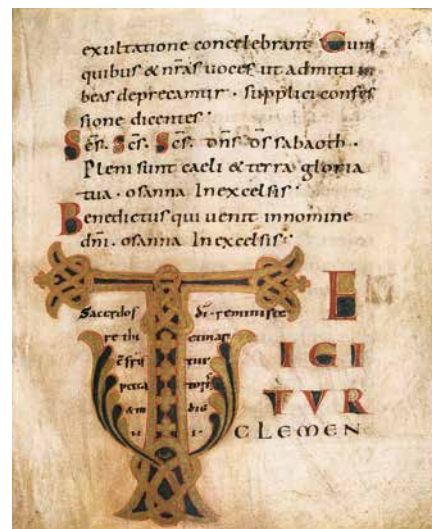 exultatione concelebrant Cum
quibus & nr̄as uoces ut admitti iu
beas deprecamur · supplici confes
sione dicentes ·
Sc̄s. Sc̄s. Sc̄s. dn̄s d̄s sabaoth ·
Pleni sunt caeli & terra gloria
tua · osanna In excelsis ·
Benedictus qui uenit in nomine
dn̄i · osanna In excelsis ·
T E
Sacerdos dī reminisce
IGI
TUR
CLEMEN